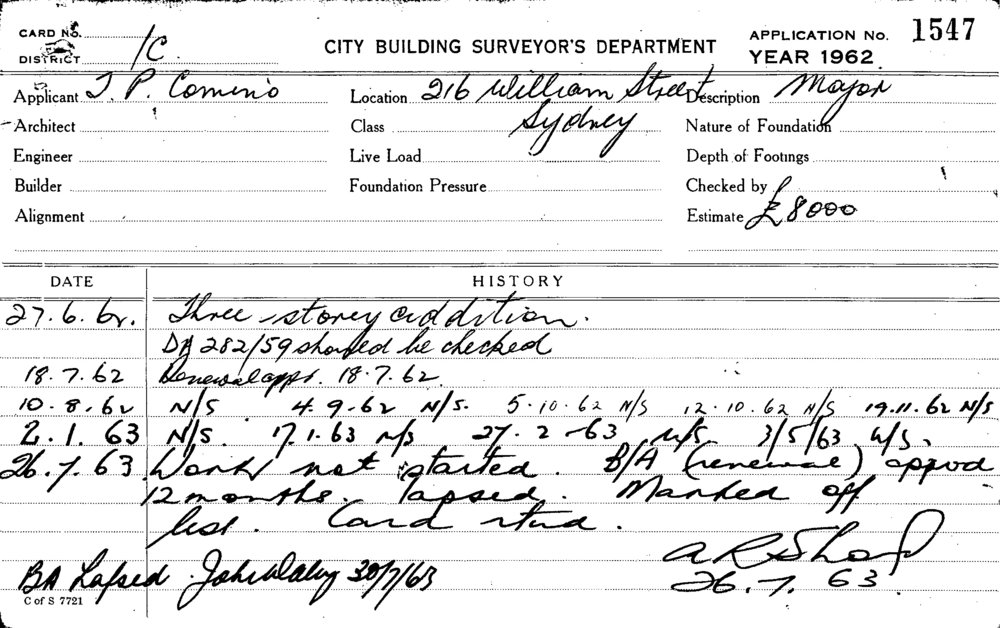 CARD No.
DISTRICT 1C
CITY BUILDING SURVEYOR'S DEPARTMENT
APPLICATION No. 1547
YEAR 1962
Applicant J. P. Comino Location 216 William Street Description Major
Architect Class Sydney Nature of Foundation
Engineer Live Load Depth of Footings
Builder Foundation Pressure Checked by
Alignment Estimate £8000
DATE HISTORY
27.6.62. Three storey addition.
DA 282/59 should be checked
18.7.62 Renewal appr. 18.7.62
10.8.62 N/S 4.9.62 N/S. 5.10.62 N/S 12.10.62 N/S 19.11.62 N/S
2.1.63 N/S. 17.1.63 N/S 27.2.63 N/S 3/5/63 N/S.
26.7.63 Work not started. B/A (renewal) approd
12 months. lapsed. Marked off
list. Card rtnd.
A R Sharp
BA Lapsed John Daley 30/7/63 26.7.63
C of S 7721